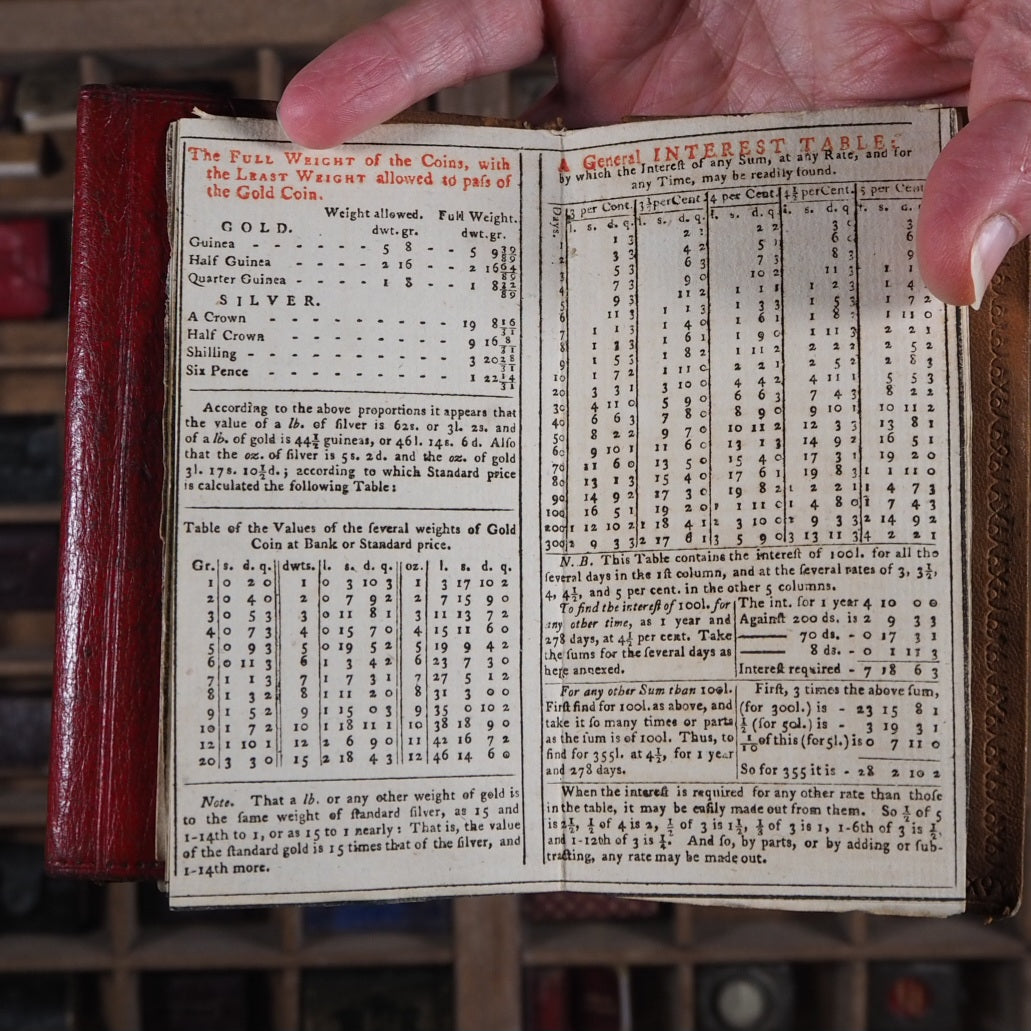 The FULL WEIGHT of the Coins, with
the LEAST WEIGHT allowed to paſs of
the Gold Coin.
Weight allowed. Full Weight.
GOLD. dwt. gr. dwt. gr.
Guinea - - - - - 5 8 - - 5 9 39/89
Half Guinea - - - - 2 16 - - 2 16 64/89
Quarter Guinea - - - - 1 8 - - 1 8 32/89
SILVER.
A Crown - - - - - - - - 19 8 16/31
Half Crown - - - - - - - 9 16 8/31
Shilling - - - - - - - - 3 20 28/31
Six Pence - - - - - - - 1 22 14/31
According to the above proportions it appears that
the value of a lb. of ſilver is 62s. or 3l. 2s. and
of a lb. of gold is 44½ guineas, or 46l. 14s. 6d. Alſo
that the oz. of ſilver is 5s. 2d. and the oz. of gold
3l. 17s. 10½d.; according to which Standard price
is calculated the following Table:
Table of the Values of the ſeveral weights of Gold
Coin at Bank or Standard price.
Gr. s. d. q. dwts. l. s. d. q. oz. l. s. d. q.
1 0 2 0 1 0 3 10 3 1 3 17 10 2
2 0 4 0 2 0 7 9 2 2 7 15 9 0
3 0 5 3 3 0 11 8 1 3 11 13 7 2
4 0 7 3 4 0 15 7 0 4 15 11 6 0
5 0 9 3 5 0 19 5 2 5 19 9 4 2
6 0 11 3 6 1 3 4 2 6 23 7 3 0
7 1 1 3 7 1 7 3 1 7 27 5 1 2
8 1 3 2 8 1 11 2 0 8 31 3 0 0
9 1 5 2 9 1 15 0 3 9 35 0 10 2
10 1 7 2 10 1 18 11 1 10 38 18 9 0
12 1 10 1 12 2 6 9 0 11 42 16 7 2
20 3 3 0 15 2 18 4 3 12 46 14 6 0
Note. That a lb. or any other weight of gold is
to the ſame weight of ſtandard ſilver, as 15 and
1-14th to 1, or as 15 to 1 nearly: That is, the value
of the ſtandard gold is 15 times that of the ſilver, and
1-14th more.
A General INTEREST TABLE;
by which the Intereſt of any Sum, at any Rate, and for
any Time, may be readily found.
Days. 3 per Cent. 3½ per Cent. 4 per Cent. 4½ per Cent. 5 per Cent
l. s. d. q. l. s. d. q. l. s. d. q. l. s. d. q. l. s. d.
1 1 3 2 1 2 2 3 0 3
2 3 3 4 2 5 1 6 0 6
3 5 3 6 3 7 3 8 3 9
4 7 3 9 0 10 2 11 3 1 1
5 9 3 11 2 1 1 1 1 2 3 1 4
6 11 3 1 1 3 1 3 3 1 5 3 1 7 2
7 1 1 3 1 4 0 1 6 1 1 8 2 1 11 0
8 1 3 3 1 6 1 1 9 0 1 11 3 2 2 1
9 1 5 3 1 8 2 1 11 2 2 2 2 2 5 2
10 1 7 2 1 11 0 2 2 1 2 5 2 2 8 3
20 3 3 1 3 10 0 4 4 2 4 11 1 5 5 3
30 4 11 0 5 9 0 6 6 3 7 4 3 8 2 2
40 6 6 3 7 8 0 8 9 0 9 10 1 10 11 2
50 8 2 2 9 7 0 10 11 2 12 3 3 13 8 1
60 9 10 1 11 6 0 13 1 3 14 9 2 16 5 1
70 11 6 0 13 5 0 15 4 0 17 3 1 19 2 0
80 13 1 3 15 4 0 17 6 1 19 8 3 1 1 11 0
90 14 9 2 17 3 0 19 8 2 1 2 2 1 1 4 7 3
100 16 5 1 19 2 0 1 1 11 0 1 4 8 0 1 7 4 3
200 1 12 10 2 1 18 4 1 2 3 10 0 2 9 3 3 2 14 9 2
300 2 9 3 3 2 17 6 1 3 5 9 0 3 13 11 3 4 2 2 1
N.B. This Table contains the intereſt of 100l. for all the
ſeveral days in the 1ſt column, and at the ſeveral rates of 3, 3½,
4, 4½, and 5 per cent. in the other 5 columns.
To find the intereſt of 100l. for
any other time, as 1 year and
278 days, at 4½ per cent. Take
the ſums for the ſeveral days as
here annexed.
The int. for 1 year 4 10 0 0
Againſt 200 ds. is 2 9 3 3
—— 70 ds. - 0 17 3 1
—— 8 ds. - 0 1 11 3
Intereſt required - 7 18 6 3
For any other Sum than 100l.
Firſt find for 100l. as above, and
take it ſo many times or parts
as the ſum is of 100l. Thus, to
find for 355l. at 4½, for 1 year
and 278 days.
Firſt, 3 times the above ſum,
(for 300l.) is - 23 15 8 1
½ (for 50l.) is - 3 19 3 1
1/10 of this (for 5l.) is 0 7 11 0
So for 355 it is - 28 2 10 2
When the intereſt is required for any other rate than thoſe
in the table, it may be eaſily made out from them. So ½ of 5
is 2½, ½ of 4 is 2, ½ of 3 is 1½, ⅓ of 3 is 1, 1-6th of 3 is ½,
and 1-12th of 3 is ¼. And ſo, by parts, or by adding or ſub-
tracting, any rate may be made out.